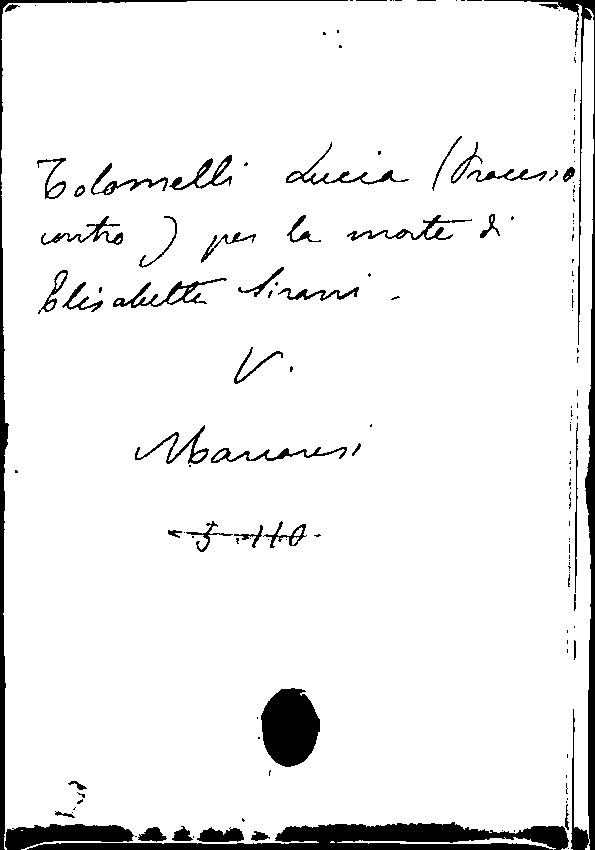 Tolomelli Lucia (Processo
contro) per la morte di
Elisabetta Sirani -
V.